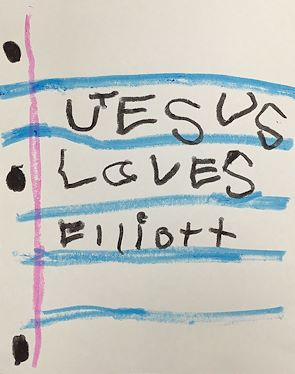 JESUS
LOVES
Elliott